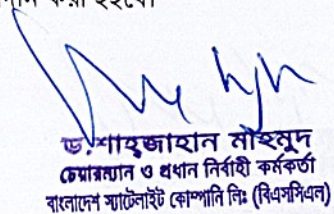 করা হইবে।
ড. শাহজাহান মাহমুদ
চেয়ারম্যান ও প্রধান নির্বাহী কর্মকর্তা
বাংলাদেশ স্যাটেলাইট কোম্পানি লিঃ (বিএসসিএল)